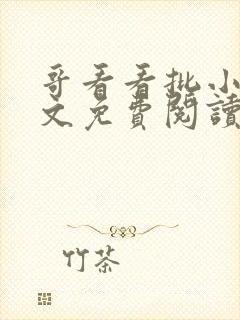 哥看看批小
文免費閱讀
竹茶